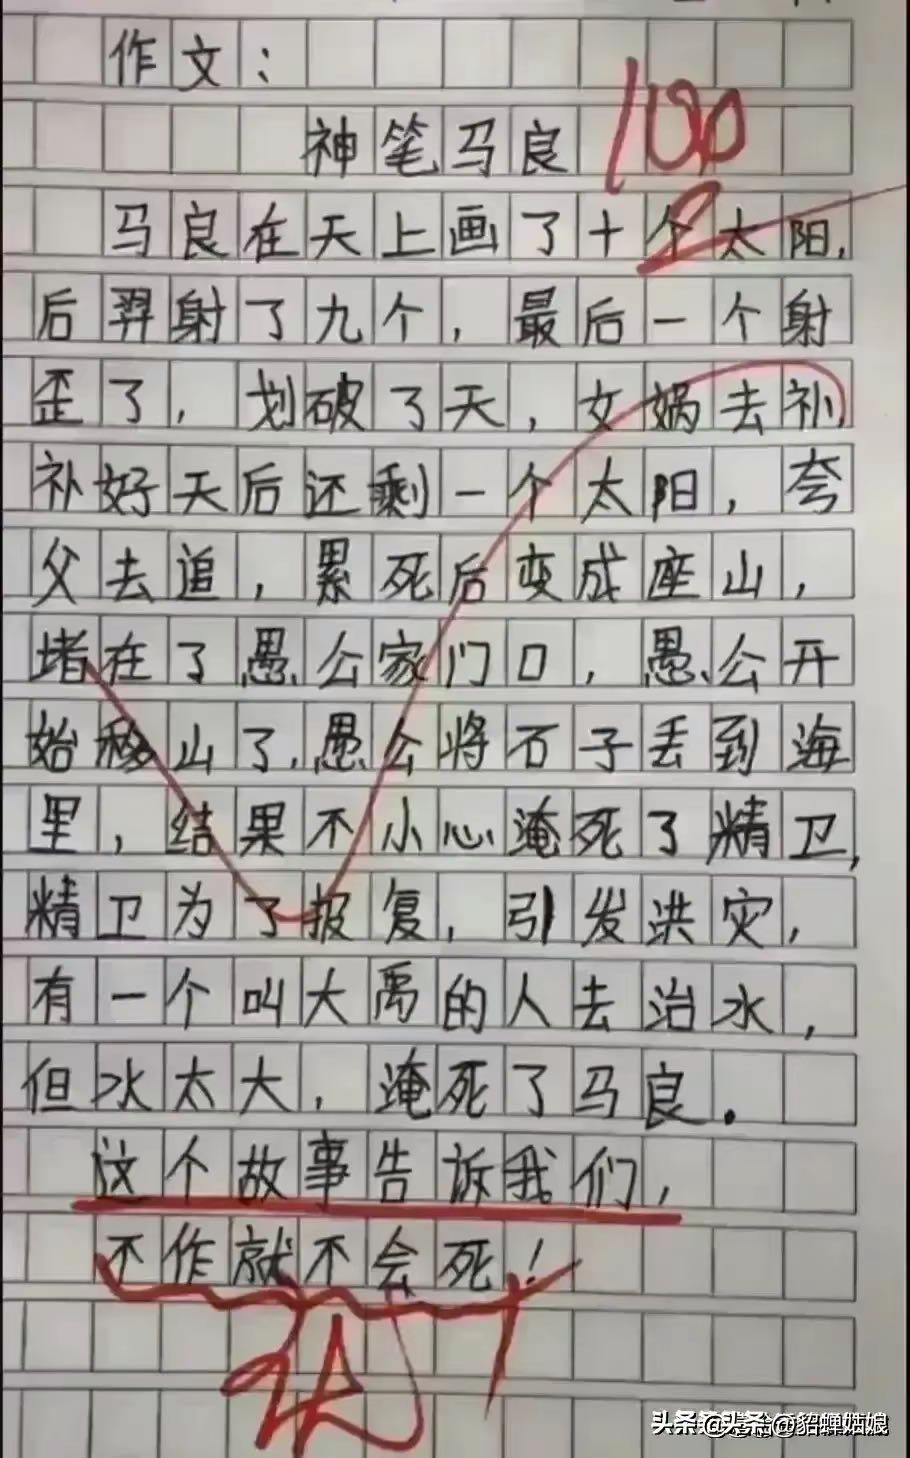 作文：
神笔马良
100
马良在天上画了十个太阳，
后羿射了九个，最后一个射
歪了，划破了天，女娲去补，
补好天后还剩一个太阳，夸
父去追，累死后变成座山，
堵在了愚公家门口，愚公开
始移山了，愚公将石子丢到海
里，结果不小心淹死了精卫，
精卫为了报复，引发洪灾，
有一个叫大禹的人去治水，
但水太大，淹死了马良。
这个故事告诉我们，
不作就不会死！
头条 @貂蝉姑娘